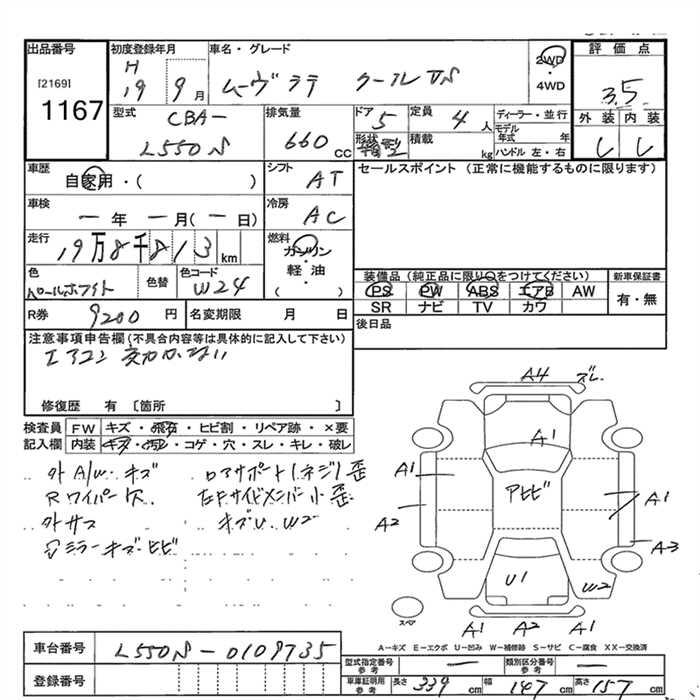 出品番号
[2169]
1167
初度登録年月
H
19 9月
車名・グレード
ムーヴラテ クールVS
2WD
・
4WD
評価点
3.5
外装 内装
型式
CBA-
L550S
排気量
660
CC
ドア
5
形状
箱型
定員
4人
積載
kg
ディーラー・並行
モデル年式 年
ハンドル 左・右
車歴
自家用・( )
シフト
AT
セールスポイント (正常に機能するものに限ります)
車検
一年 一月(一日)
冷房
AC
走行
19万8千813km
燃料
ガソリン
・
軽・油
( )
色
パールホワイト
色替
色コード
W24
装備品(純正品に限り〇をつけてください)
PS PW ABS エアB AW
SR ナビ TV カワ
新車保証書
有・無
R券
9200円
名変期限 月 日
後日品
注意事項申告欄(不具合内容等は具体的に記入して下さい)
エアコン効かない
修復歴 有 [箇所 ]
検査員
記入欄
FW キズ・飛石・ヒビ割・リペア跡・×要
内装 キズ・汚レ・コゲ・穴・スレ・キレ・破レ
外A/W.キズ
Rワイパー欠
外サス
ミラーキズ・ヒビ
ロアサポート(ネジ)歪
左Fサイドメンバー小歪
キズU.W2
A4 ズレ
A1
A1
アヒビ
A1
A2
A3
U1
W2
スペア
A1 A2 A1
A-キズ E-エクボ U-凹み W-補修跡 S-サビ C-腐食 XX-交換済
車台番号
L550S-0109735
登録番号
型式指定番号
参考
一
類別区分番号
参考
一
車庫証明用
参考
長さ 339cm
幅 147cm
高さ 157cm